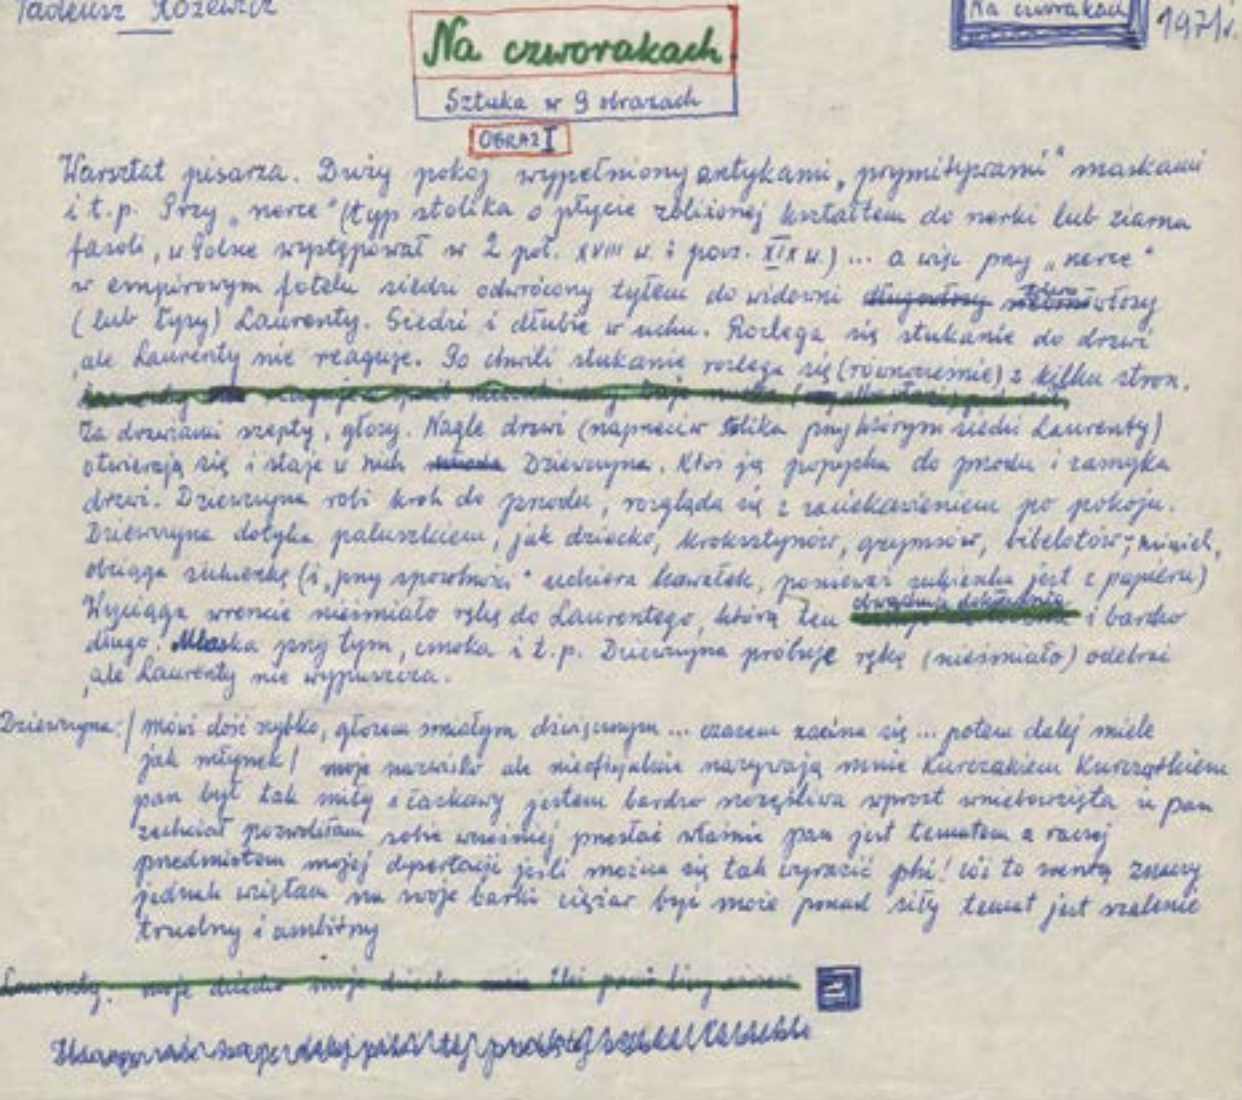 Tadeusz Różewicz
Na czworakach
1971r.
Na czworakach
Sztuka w 9 obrazach
OBRAZ I
Warsztat pisarza. Duży pokój wypełniony antykami, „prymitywami" maskami
i t.p. Przy „nerce" (typ stolika o płycie zbliżonej kształtem do nerki lub ziarna
fasoli, w Polsce występował w 2 poł. XVIII w. i pocz. XIX w.) ... a więc przy „nerce"
w empirowym fotelu siedzi odwrócony tyłem do widowni długowłosy włosy
(lub łysy) Laurenty. Siedzi i dłubie w uchu. Rozlega się stukanie do drzwi
, ale Laurenty nie reaguje. Po chwili stukanie rozlega się (równocześnie) z kilku stron.
Za drzwiami szepty, głosy. Nagle drzwi (naprzeciw stolika przy którym siedzi Laurenty)
otwierają się i staje w nich młoda Dziewczyna. Ktoś ją popycha do przodu i zamyka
drzwi. Dziewczyna robi krok do przodu, rozgląda się z zaciekawieniem po pokoju.
Dziewczyna dotyka paluszkiem, jak dziecko, kroksztynów, gzymsów, bibelotów,
obciąga sukienkę (i „przy sposobności" udziera kawałek, ponieważ sukienka jest z papieru)
Wyciąga wreszcie nieśmiało rękę do Laurentego, którą ten obwąchuje dokładnie i bardzo
długo. Mlaska przy tym, cmoka i t.p. Dziewczyna próbuje rękę (nieśmiało) odebrać
, ale Laurenty nie wypuszcza.
Dziewczyna: / mówi dość szybko, głosem śmiałym dźwięcznym ... czasem zacina się ... potem dalej miele
jak młynek / moje nazwisko ale nieoficjalnie nazywają mnie Kurczakiem Kurczątkiem
pan był tak miły i łaskawy jestem bardzo szczęśliwa wprost wniebowzięta że pan
zechciał pozwoliłam sobie wcześniej przesłać właśnie pan jest tematem a raczej
przedmiotem mojej dysertacji jeśli można się tak wyrazić phi! cóż to znowu
jednak wzięłam na swoje barki ciężar być może ponad siły temat jest szalenie
trudny i ambitny
Laurenty: moje dziecko moje dziecko